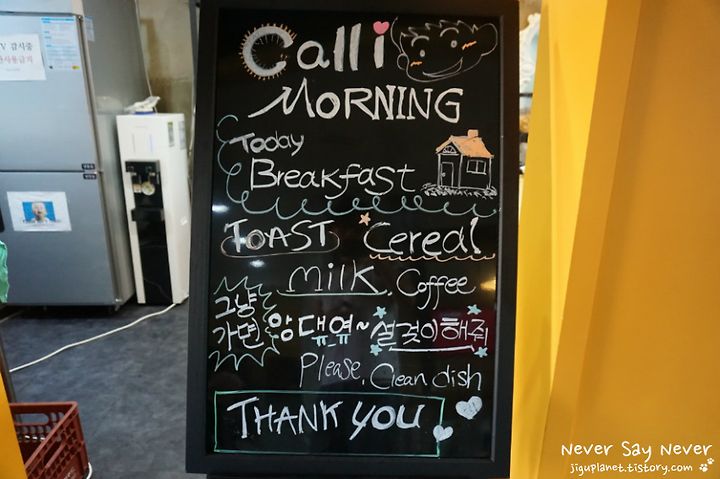 V 감시중
사용금지
Calli
MORNING
Today
Breakfast
TOAST Cereal
milk, Coffee
그냥 가면 앙대옢~ 설겆이해줘
Please, Clean dish
THANK YOU
Never Say Never
jiguplanet.tistory.com